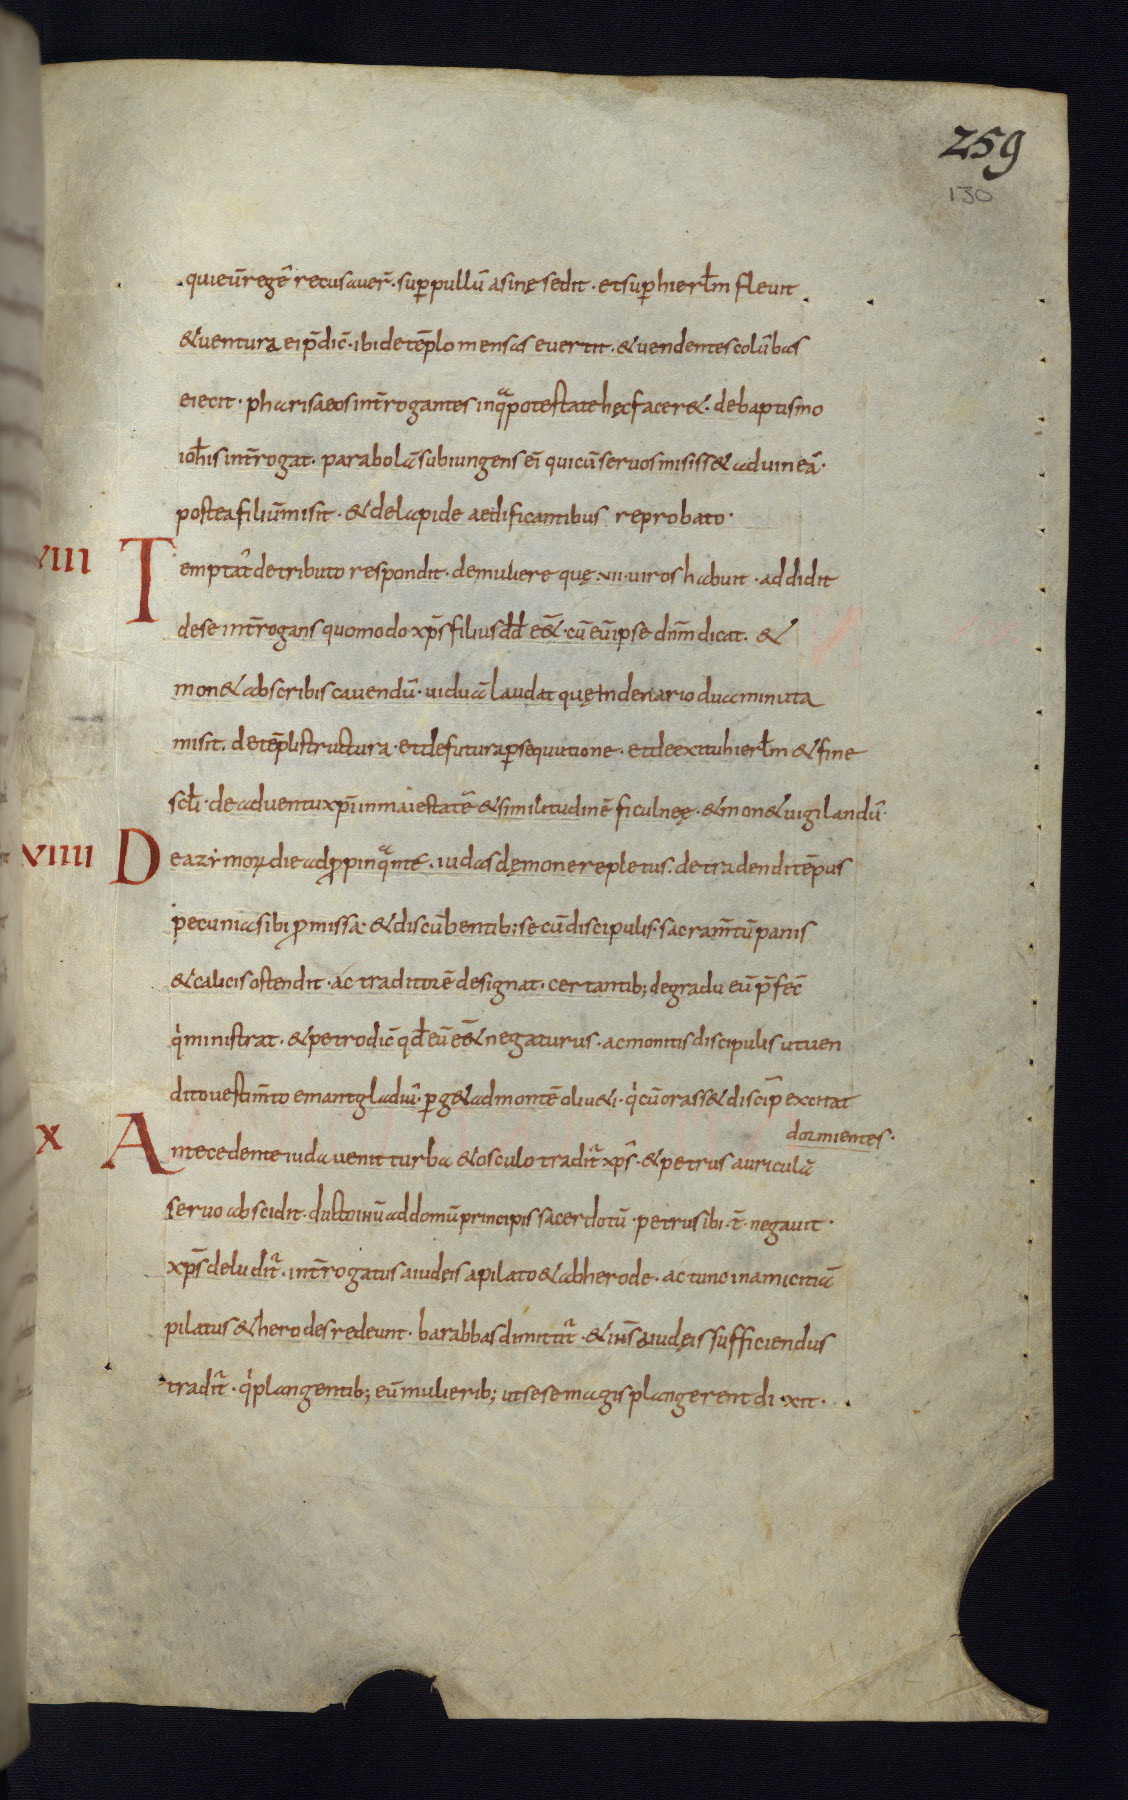 259
130
qui eū regē recusaver̄ · sup̄ pullū asinę sedit · et sup̄ hierƚm flevit
& ventura ei p̄dic̄ · ibi de tēplo mensas evertit · & vendentes colūbas
eiecit · pharisaeos int̄rogantes in qᵃ potestate hęc facer& · de baptismo
ioħis int̄rogat · parabolā subiungens eī qui cū servos misiss& ad vineā ·
postea filiū misit · & de lapide aedificantibus reprobato ·
VIII Temptat̄ de tributo respondit · de muliere quę · VII · viros habuit · addidit
de se int̄rogans quomodo xp̄s filius dđ eē& · cū eū ipse dn̄m dicat · &
mon& a scribis cavendū · viduā laudat quę in denario dua minuta
misit · de tēpli structura · et de futura p̄sequutione · et de exitu hierƚm & fine
scƚi · de adventu xp̄i in maiestatē & similitudinē ficulneę · & mon& vigilandū ·
VIIII De azimoꝝ die adpropinqᵃnte · iudas dęmone repletus · de tradendi tēpus
pecunia sibi p̄missa · & discūbentib; secū discipulis · sacram̄tū panis
& calicis ostendit · ac traditorē designat · certantib; de gradu eū p̄fec̄
qⁱ ministrat · & petro dic̄ qđ eū eē& negaturus · ac monitis discipulis ut ven
dito vestim̄to emant gladiū · p̄g& ad montē oliv&i · qⁱ cū orass& discip̄ excitat
dormientes ·
X Antecedente iuda venit turba & osculo tradit̄ xp̄s · & petrus auriculā
servo abscidit · ducto ihū ad domū principis sacerdotū · petrus ibi · t̄ · negavit ·
xp̄s deludit̄ · int̄rogatus a iudeis a pilato & ab herode · ac tunc in amicitiā
pilatus & herodes redeunt · barabbas dimittit̄ · & ihs̄ a iudęis sufficiendus
tradit̄ · qⁱ plangentib; eū mulierib; ut sese magis plangerent di · xit ·